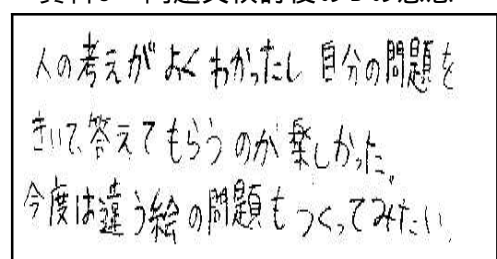 人の考えがよくわかったし 自分の問題を
きいて、答えてもらうのが楽しかった。
今度は違う絵の問題もつくってみたい。